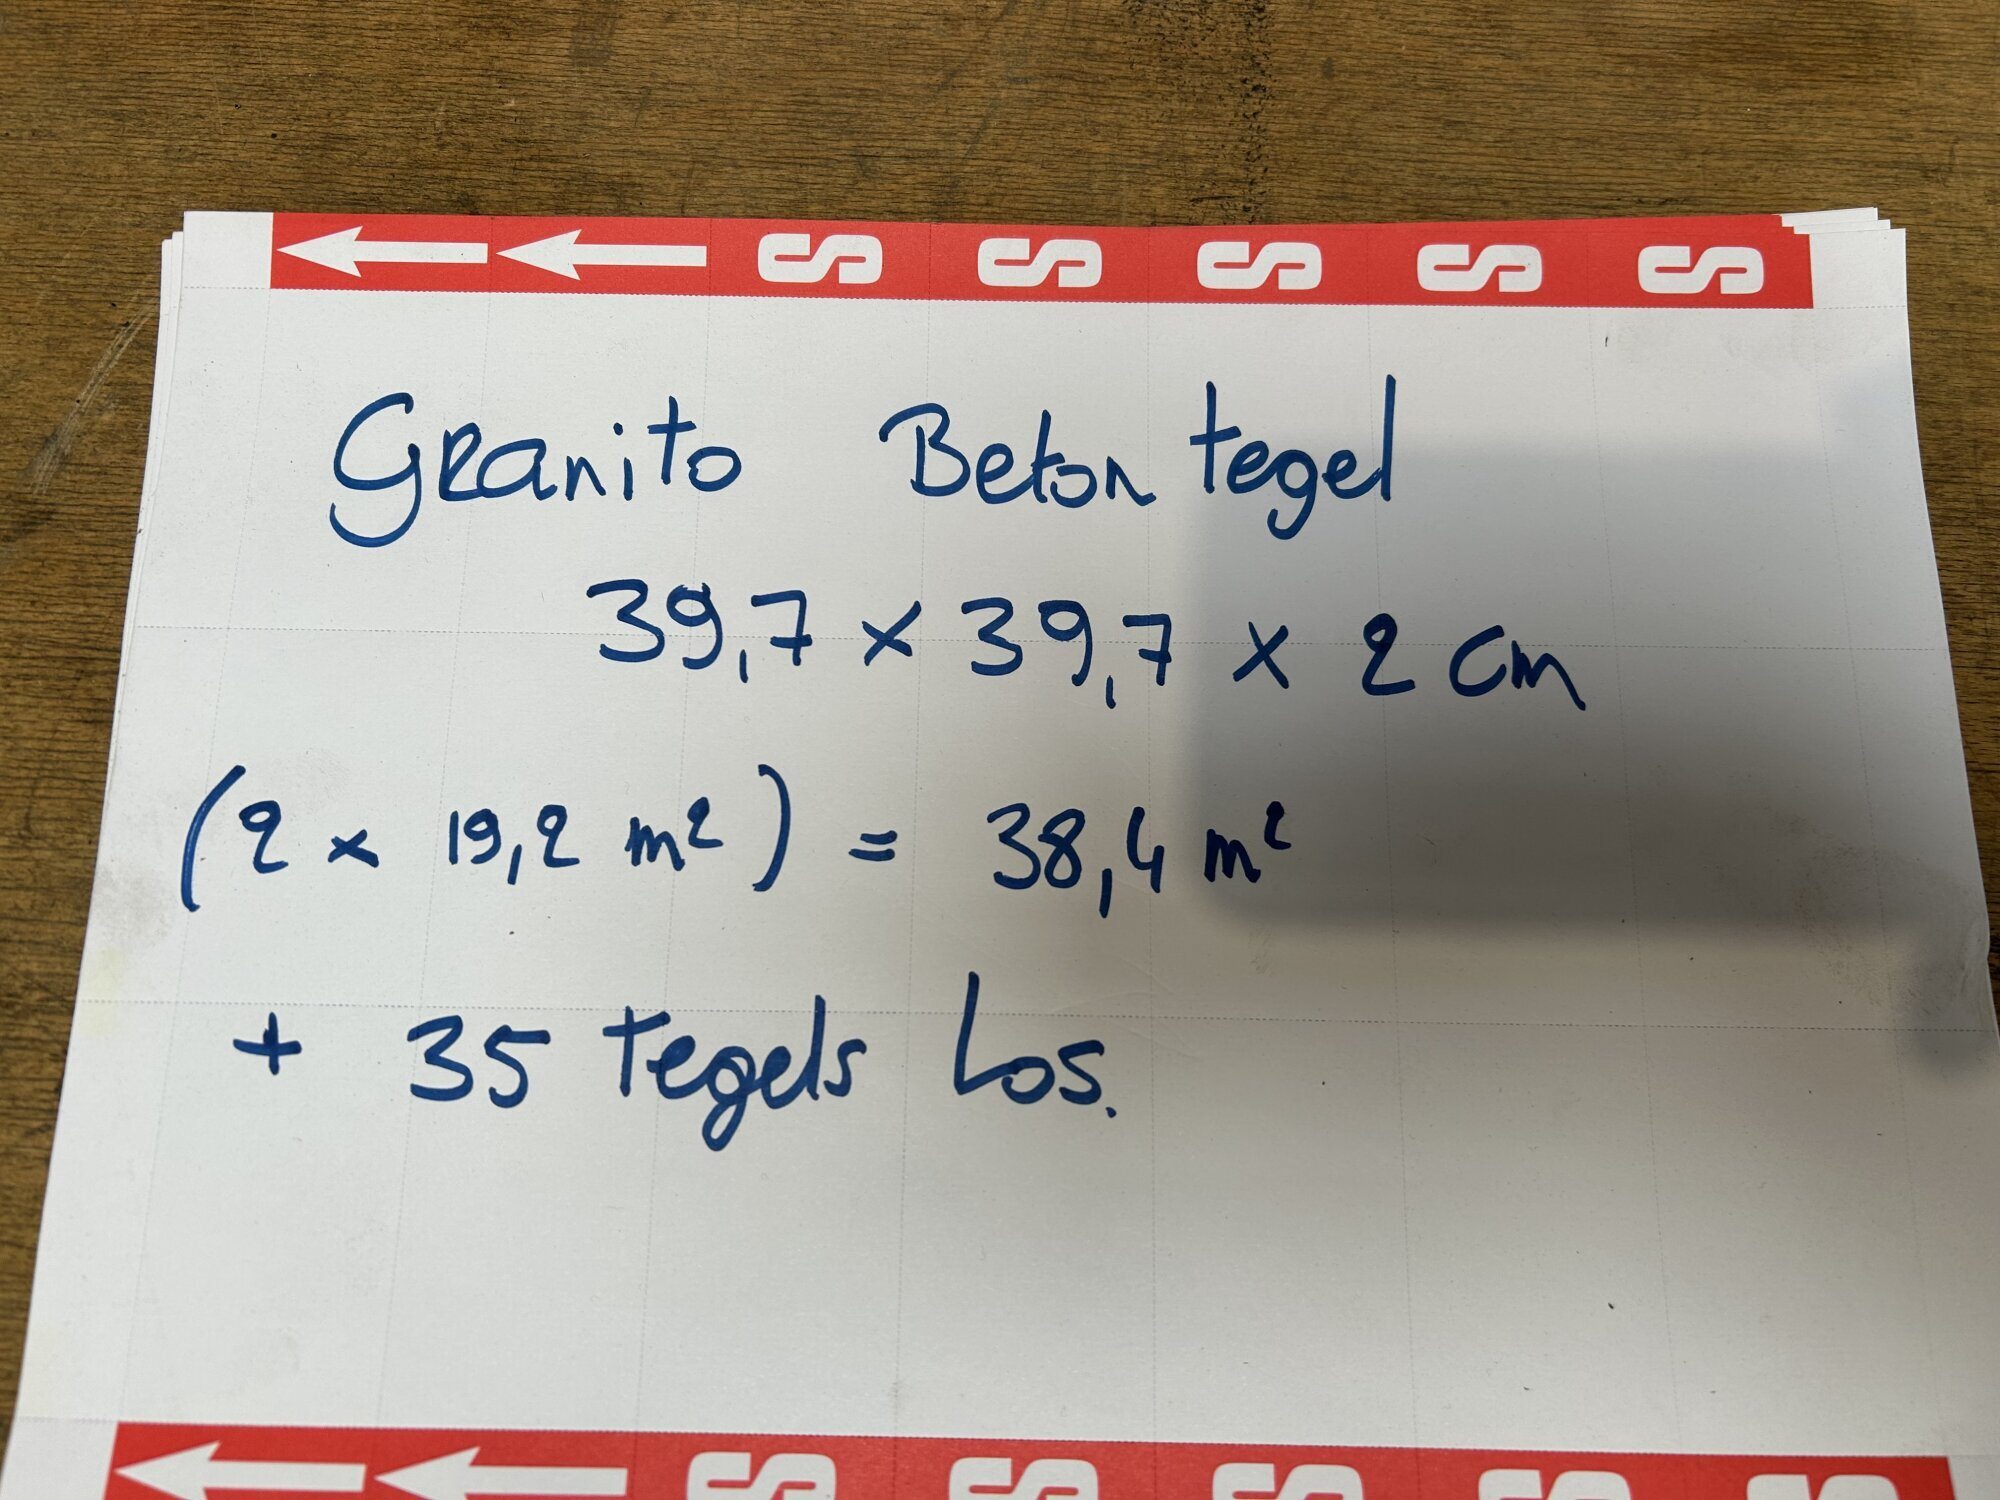 S S S S S
Granito Beton tegel
39,7 x 39,7 x 2 cm
(2 x 19,2 m²) = 38,4 m²
+ 35 Tegels Los.
S S S S S